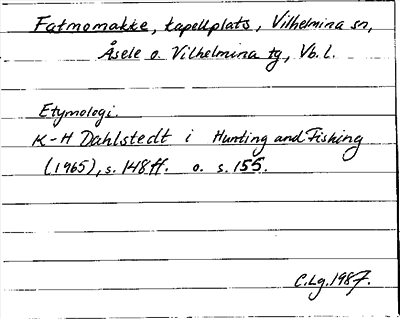 Fatmomakke, kapellplats, Vilhelmina sn,
Åsele o. Vilhelmina tg, Vb. l.
Etymologi.
K-H Dahlstedt i Hunting and Fishing
(1965), s. 148 ff. o. s. 155.
C.Lg. 1987.